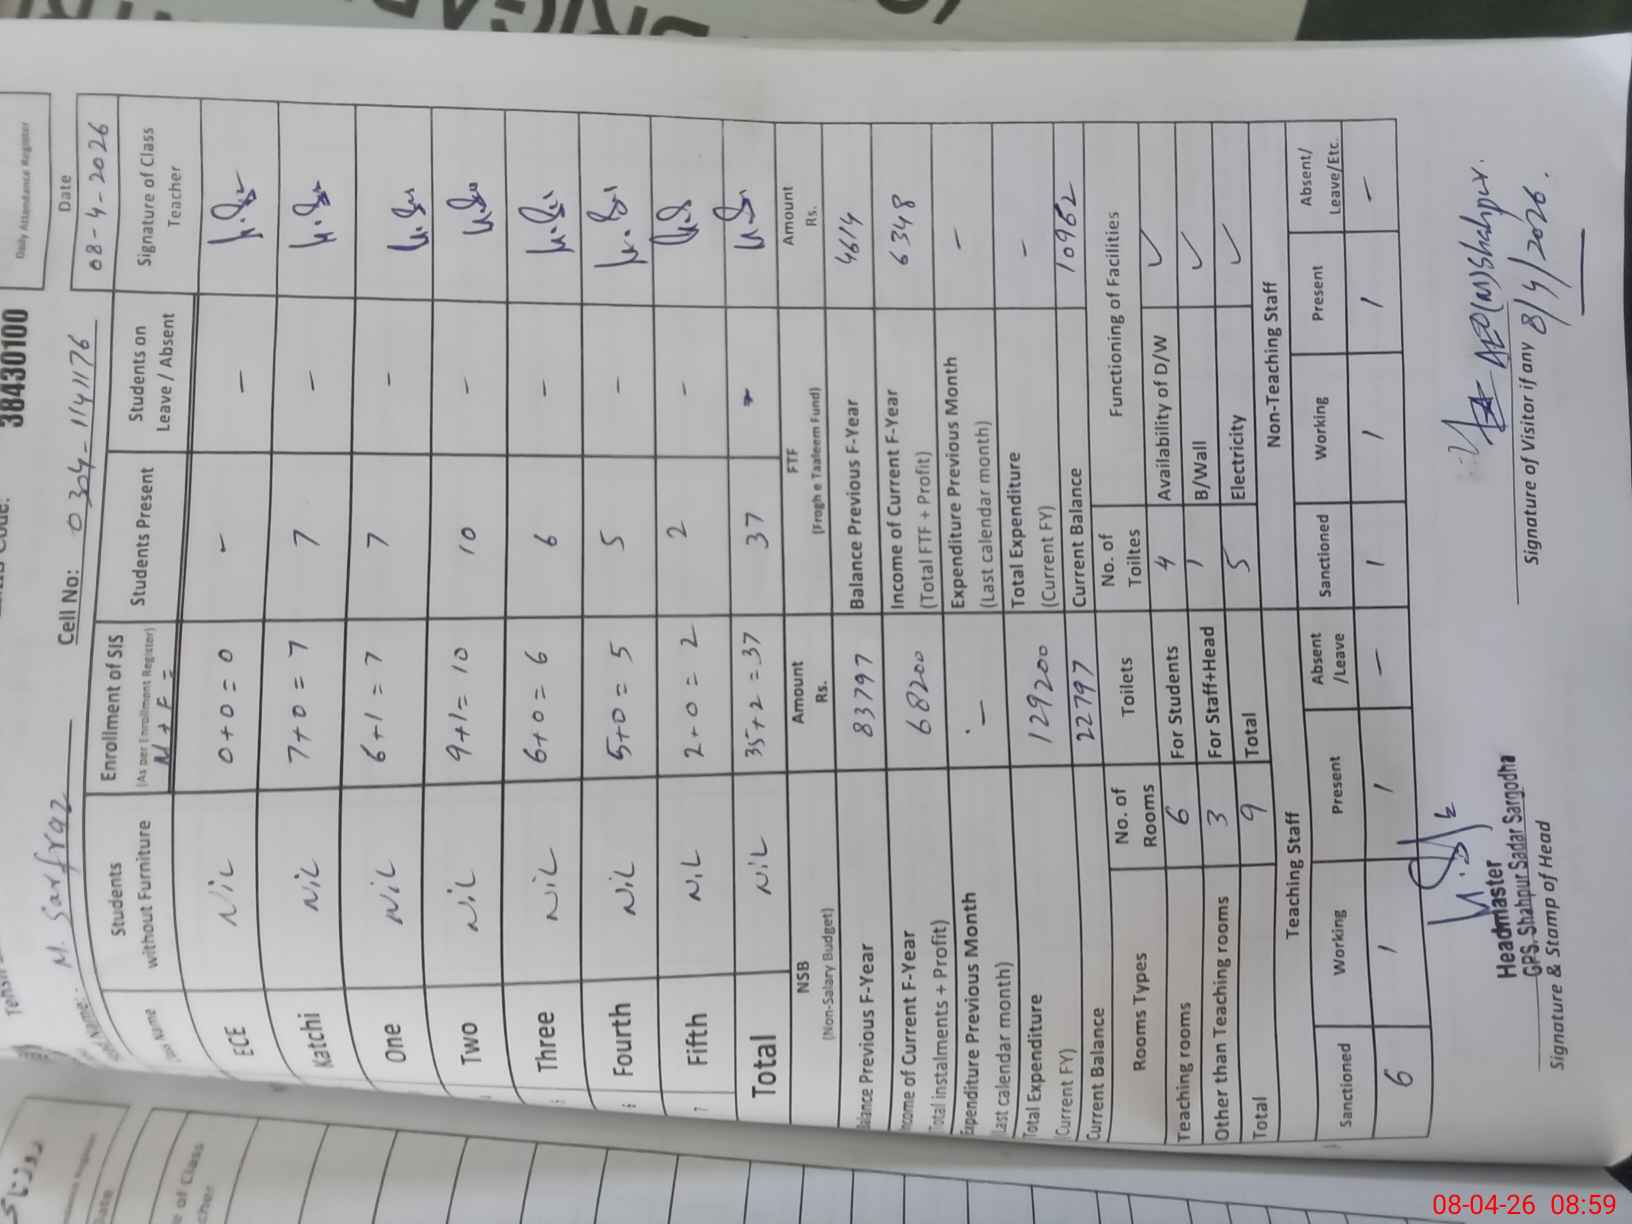 Daily Attendance Register
38430100
M. Sarfraz Cell No: 0304-1141176 Date 08-4-2026
Name Students without Furniture Enrollment of SIS (As per Enrollment Register) M + F = Students Present Students on Leave / Absent Signature of Class Teacher
ECE NiL 0+0=0 - -
Katchi NiL 7+0=7 7 -
One NiL 6+1=7 7 -
Two NiL 9+1=10 10 -
Three NiL 6+0=6 6 -
Fourth NiL 5+0=5 5 -
Fifth NiL 2+0=2 2 -
Total NiL 35+2=37 37 -
NSB (Non-Salary Budget) Amount Rs. FTF (Frogh e Taaleem Fund) Amount Rs.
Balance Previous F-Year 83797 Balance Previous F-Year 4614
Income of Current F-Year 68200 Income of Current F-Year 6348
Total instalments + Profit) (Total FTF + Profit)
Expenditure Previous Month - Expenditure Previous Month -
Last calendar month) (Last calendar month)
Total Expenditure 129200 Total Expenditure -
(Current FY) (Current FY)
Current Balance 22797 Current Balance 10962
Rooms Types No. of Rooms Toilets No. of Toiltes Functioning of Facilities
Teaching rooms 6 For Students 4 Availability of D/W ✓
Other than Teaching rooms 3 For Staff+Head 1 B/Wall ✓
Total 9 Total 5 Electricity ✓
Teaching Staff Non-Teaching Staff
Sanctioned Working Present Absent /Leave Sanctioned Working Present Absent/ Leave/Etc.
6 1 1 - 1 1 1 -
Headmaster
GPS, Shahpur Sadar Sargodha
Signature & Stamp of Head
AEO(M) Shahpur.
Signature of Visitor if any 8/4/2026.
of Class
08-04-26 08:59